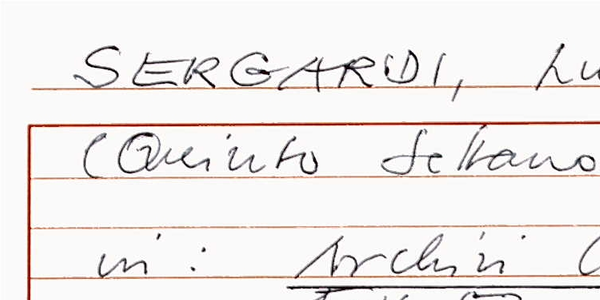 SERGARDI, Lu
(Quinto Settano
in: Archivi